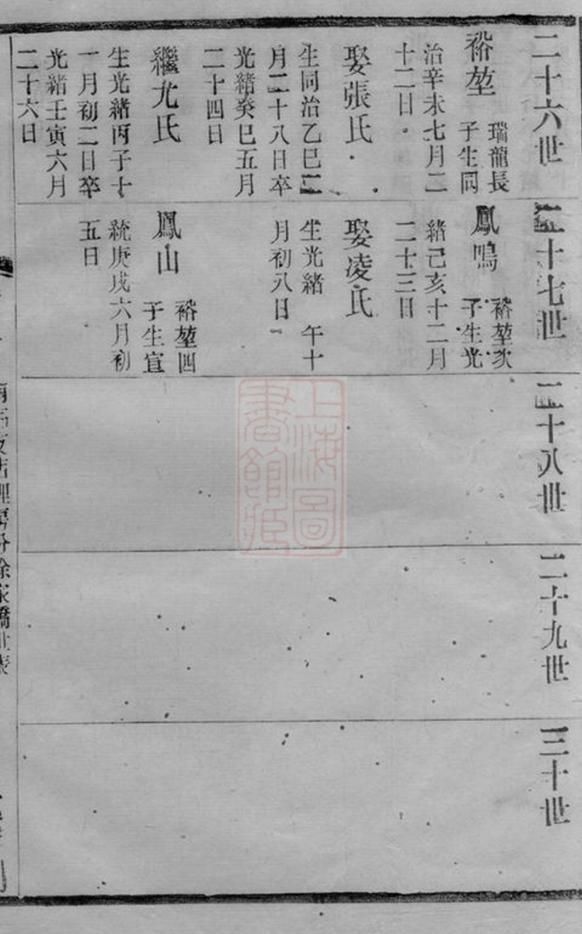 二十六世
裕堃
瑞龍長
子生同
治辛未七月二
十二日
娶張氏
生同治乙巳二
月二十八日卒
光緒癸巳五月
二十四日
繼尤氏
生光緒丙子十
一月初二日卒
光緒壬寅六月
二十六日
二十七世
鳳鳴
裕堃次
子生光
緒己亥十二月
二十三日
娶凌氏
生光緒 午十
月初八日
鳳山
裕堃四
子生宣
統庚戌六月初
五日
二十八世
二十九世
三十世
上海圖
書館藏